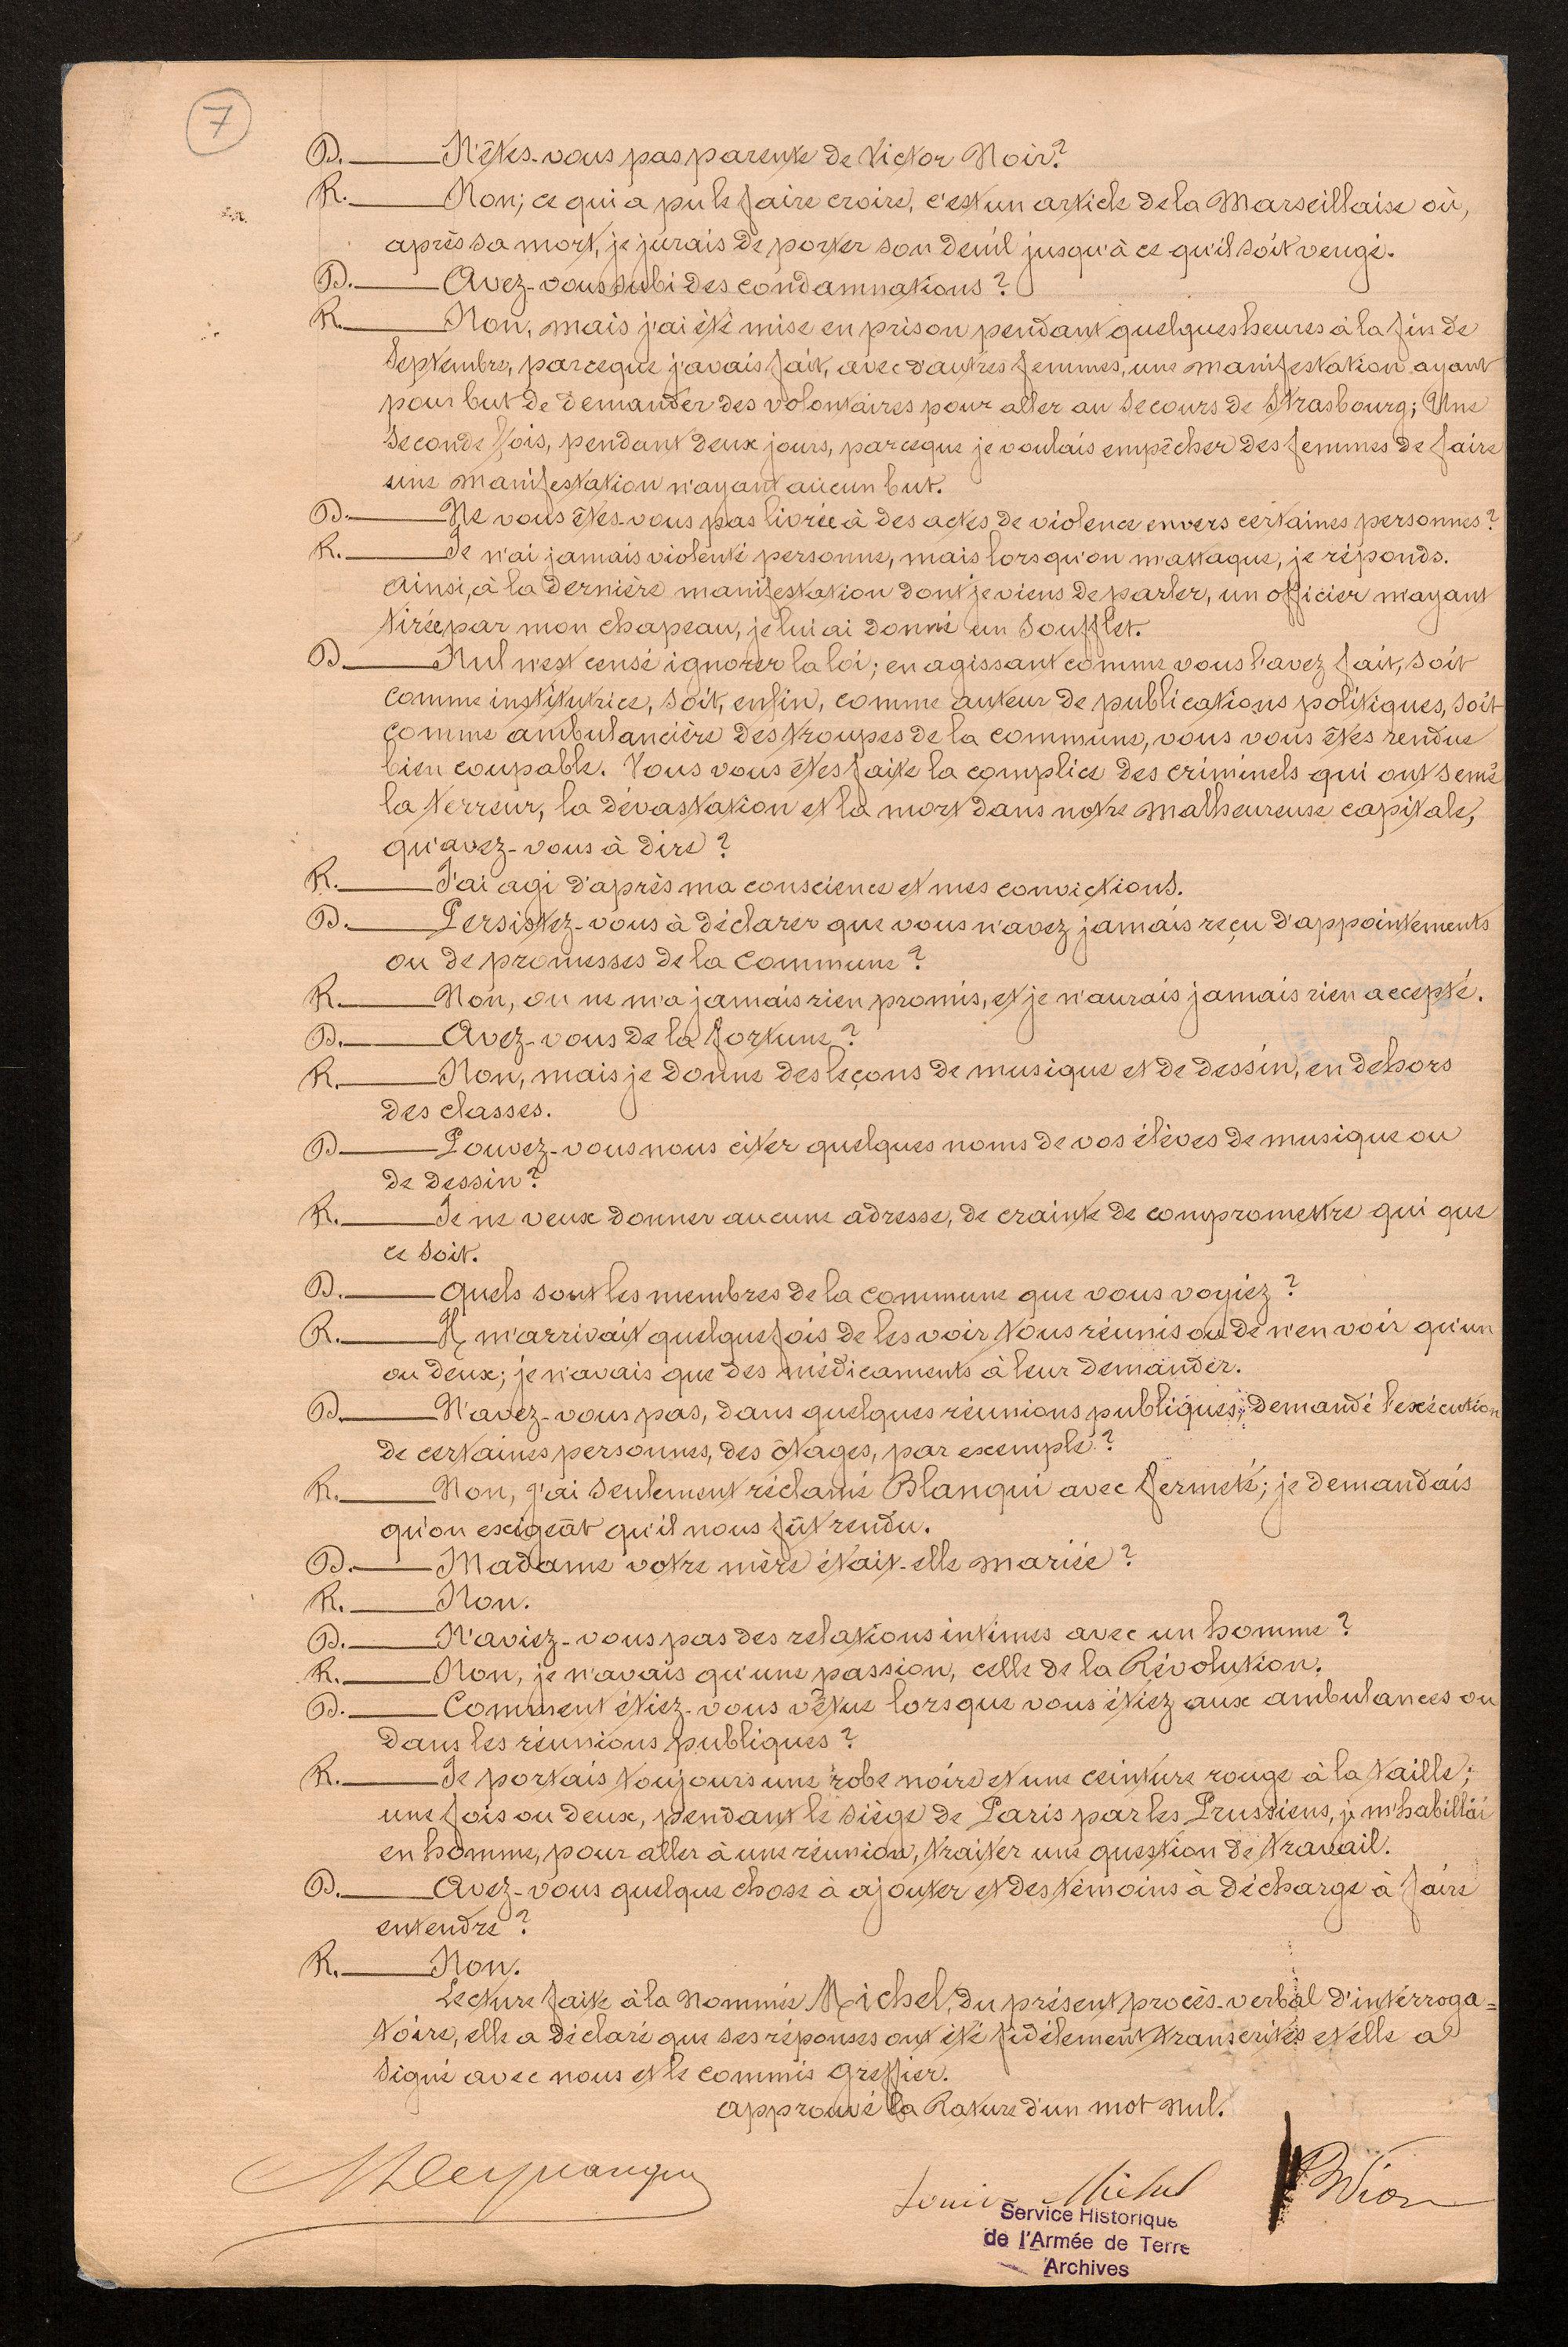 7
D. N'êtes-vous pas parente de Victor Noir?
R. Non; ce qui a pu le faire croire, c'est un article de la Marseillaise où,
après sa mort, je jurais de porter son deuil jusqu'à ce qu'il soit vengé.
D. Avez-vous subi des condamnations?
R. Non, mais j'ai été mise en prison pendant quelques heures à la fin de
Septembre, parceque j'avais fait, avec d'autres femmes, une manifestation ayant
pour but de demander des volontaires pour aller au secours de Strasbourg; Une
seconde fois, pendant deux jours, parceque je voulais empêcher des femmes de faire
une manifestation n'ayant aucun but.
D. Ne vous êtes-vous pas livrée à des actes de violence envers certaines personnes?
R. Je n'ai jamais violenté personne, mais lorsqu'on m'attaque, je réponds.
Ainsi, à la dernière manifestation dont je viens de parler, un officier m'ayant
tirée par mon chapeau, je lui ai donné un soufflet.
D. Nul n'est censé ignorer la loi; en agissant comme vous l'avez fait, soit
comme institutrice, soit, enfin, comme auteur de publications politiques, soit
comme ambulancière des troupes de la commune, vous vous êtes rendue
bien coupable. Vous vous êtes faite la complice des criminels qui ont semé
la terreur, la dévastation et la mort dans notre malheureuse capitale,
qu'avez-vous à dire?
R. J'ai agi d'après ma conscience et mes convictions.
D. Persistez-vous à déclarer que vous n'avez jamais reçu d'appointements
ou de promesses de la Commune?
R. Non, on ne m'a jamais rien promis, et je n'aurais jamais rien accepté.
D. Avez-vous de la fortune?
R. Non, mais je donne des leçons de musique et de dessin, en dehors
des classes.
D. Pouvez-vous nous citer quelques noms de vos élèves de musique ou
de dessin?
R. Je ne veux donner aucune adresse, de crainte de compromettre qui que
ce soit.
D. Quels sont les membres de la commune que vous voyiez?
R. Il m'arrivait quelquefois de les voir tous réunis ou de n'en voir qu'un
ou deux; je n'avais que des médicaments à leur demander.
D. N'avez-vous pas, dans quelques réunions publiques, demandé l'exécution
de certaines personnes, des ôtages, par exemple?
R. Non, j'ai seulement réclamé Blanqui avec fermeté; je demandais
qu'on exigeât qu'il nous fût rendu.
D. Madame votre mère était-elle mariée?
R. Non.
D. N'aviez-vous pas des relations intimes avec un homme?
R. Non, je n'avais qu'une passion, celle de la Révolution.
D. Comment étiez-vous vêtue lorsque vous étiez aux ambulances ou
dans les réunions publiques?
R. Je portais toujours une robe noire et une ceinture rouge à la taille;
une fois ou deux, pendant le siège de Paris par les Prussiens, je m'habillai
en homme, pour aller à une réunion, traiter une question de travail.
D. Avez-vous quelque chose à ajouter et des témoins à décharge à faire
entendre?
R. Non.
Lecture faite à la nommée Michel, du présent procès-verbal d'interroga=
toire, elle a déclaré que ses réponses ont été fidèlement transcrites et elle a
signé avec nous et le commis greffier.
approuvé la Rature d'un mot nul.
Louise Michel
Service Historique
de l'Armée de Terre
Archives